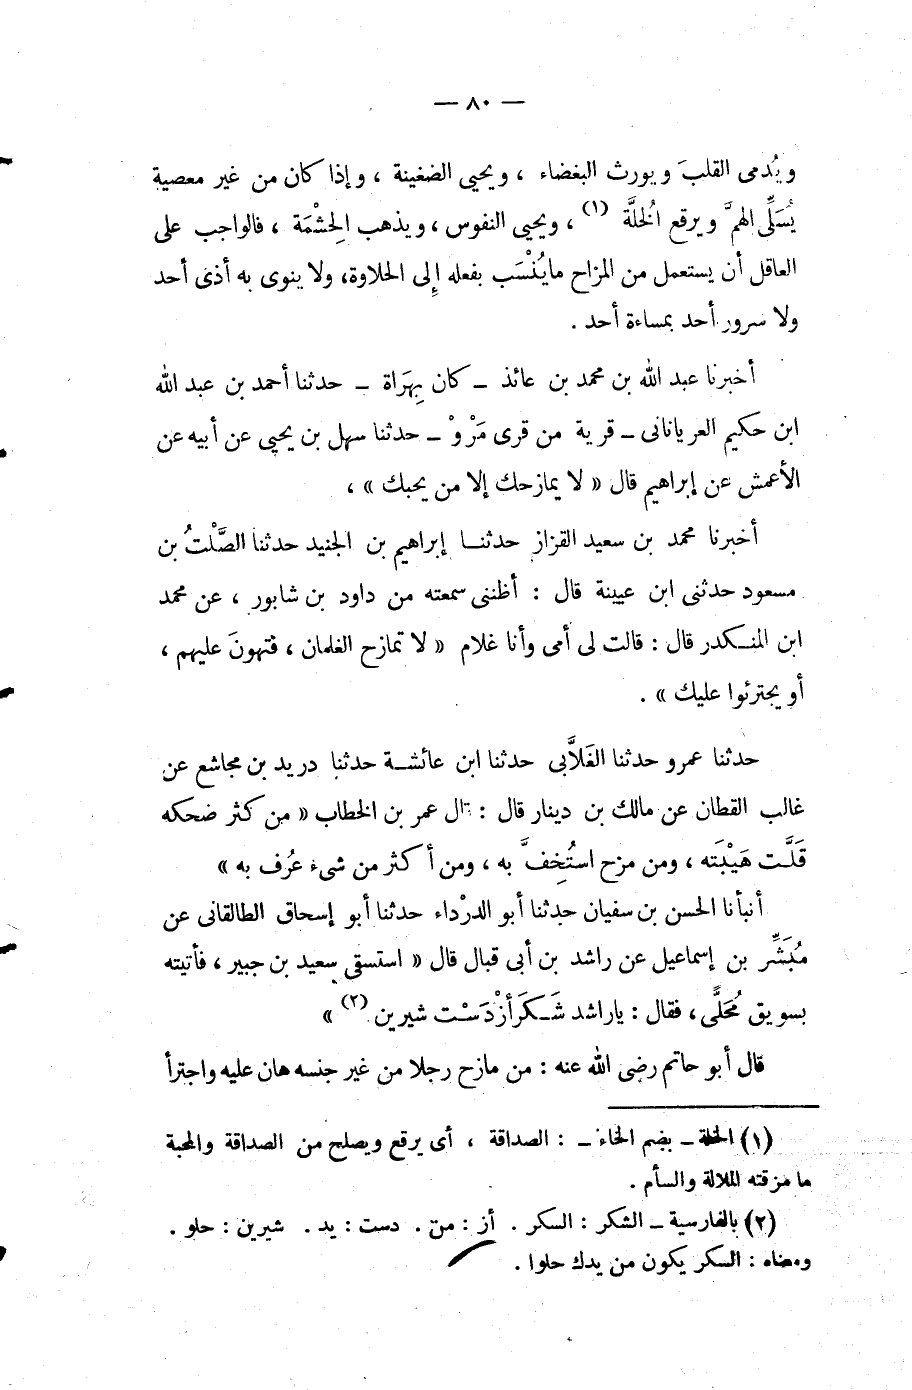 — ٨٠ —
ويُدمى القلبَ ويورث البغضاء ، ويحيى الضغينة ، وإذا كان من غير معصية
يُسَلِّى الهمَّ ويرقع الُخلَّة (١) ، ويحيى النفوس ، ويذهب الِحشْمَة ، فالواجب على
العاقل أن يستعمل من المزاح مايُنْسَب بفعله إلى الحلاوة، ولا ينوى به أذى أحد
ولا سرور أحد بمساءة أحد .
أخبرنا عبد الله بن محمد بن عائذ – كان بِهَراة – حدثنا أحمد بن عبد الله
ابن حكيم العريانانى – قرية من قرى مَرْوْ – حدثنا سهل بن يحيى عن أبيه عن
الأعمش عن إبراهيم قال « لا يمازحك إلا من يحبك » ،
أخبرنا محمد بن سعيد القزاز حدثنا إبراهيم بن الجنيد حدثنا الصَّلْتُ بن
مسعود حدثنى ابن عيينة قال : أظننى سمعته من داود بن شابور ، عن محمد
ابن المنكدر قال : قالت لى أمى وأنا غلام « لا تمازح الغلمان ، فتهونَ عليهم ،
أو يجترئوا عليك » .
حدثنا عمرو حدثنا الغَلاَّبى حدثنا ابن عائشة حدثنا دريد بن مجاشع عن
غالب القطان عن مالك بن دينار قال : قال عمر بن الخطاب « من كثر ضحكه
قَلَّت هَيْبَته ، ومن مزح استُخِفَّ به ، ومن أكثر من شىء عُرف به »
أنبأنا الحسن بن سفيان حدثنا أبو الدرْداء حدثنا أبو إسحاق الطالقانى عن
مُبَشِّر بن إسماعيل عن راشد بن أبى قبال قال « استسقى سعيد بن جبير ، فأتيته
بسويق مُحَلًّى ، فقال : ياراشد شَكَرأزْدَسْت شيرين (٢) »
قال أبو حاتم رضى الله عنه : من مازح رجلا من غير جنسه هان عليه واجترأ
(١) الخلة – بضم الخاء – : الصداقة ، أى يرقع ويصلح من الصداقة والمحبة
ما مزقته الملالة والسأم .
(٢) بالفارسية – الشكر : السكر . أز : من . دست : يد . شيرين : حلو .
ومعناه : السكر يكون من يدك حلوا .